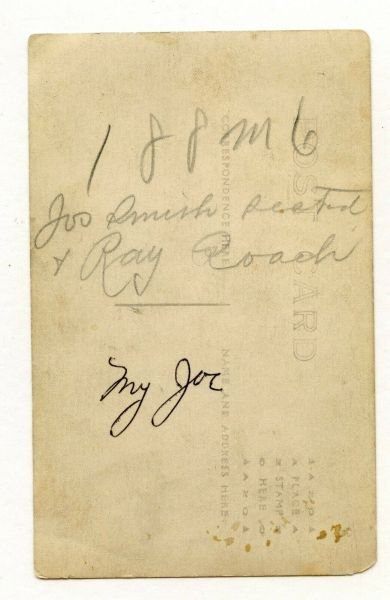 188 M 6
Joe Smith seated
& Ray Roach
My Joe
POST CARD
CORRESPONDENCE HERE
NAME AND ADDRESS HERE
AZO
PLACE
STAMP
HERE
AZO